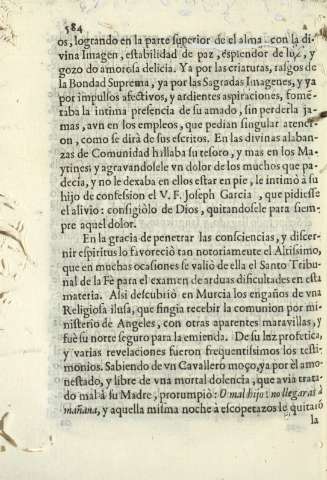 584
os, logrando en la parte superior de el alma con la di-
vina Imagen, estabilidad de paz, esplendor de luz, y
gozo do amorosa delicia. Ya por las criaturas, rasgos de
la Bondad Suprema, ya por las Sagradas Imagenes, y ya
por impulsos afectivos, y ardientes aspiraciones, fomẽ-
taba la intima presencia de su amado, sin perderla ja-
mas, aun en los empleos, que pedian singular atenci-
on, como se dirà de sus escritos. En las divinas alaban-
zas de Comunidad hallaba su tesoro, y mas en los Ma-
ytines; y agravandosele vn dolor de los muchos que pa-
decia, y no le dexaba en ellos estar en pie, le intimò a su
hijo de confesion el V. F. Joseph Garcia, que pidiesse
el alivio: consigiòlo de Dios, quitandosele para siem-
pre aquel dolor.
En la gracia de penetrar las consciencias, y discer-
nir espiritus lo favoreciò tan notoriamente el Altisimo,
que en muchas ocasiones se valiò de ella el Santo Tribu-
nal de la Fè para el examen de arduas dificultades en esta
materia. Asi descubriò en Murcia los engaños de vna
Religiosa ilusa, que fingia recibir la comunion por mi-
nisterio de Angeles, con otras aparentes maravillas, y
fuè su norte seguro para la emienda. De su luz profetica,
y varias revelaciones fueron frequentisimos los testi-
monios. Sabiendo de vn Cavallero moço, ya por èl amo-
nestado, y libre de vna mortal dolencia, que avia trata-
do mal à su Madre, prorumpiò: O mal hijo! no llegaràs à
mañana, y aquella misma noche à escopetazos le quitarò
la